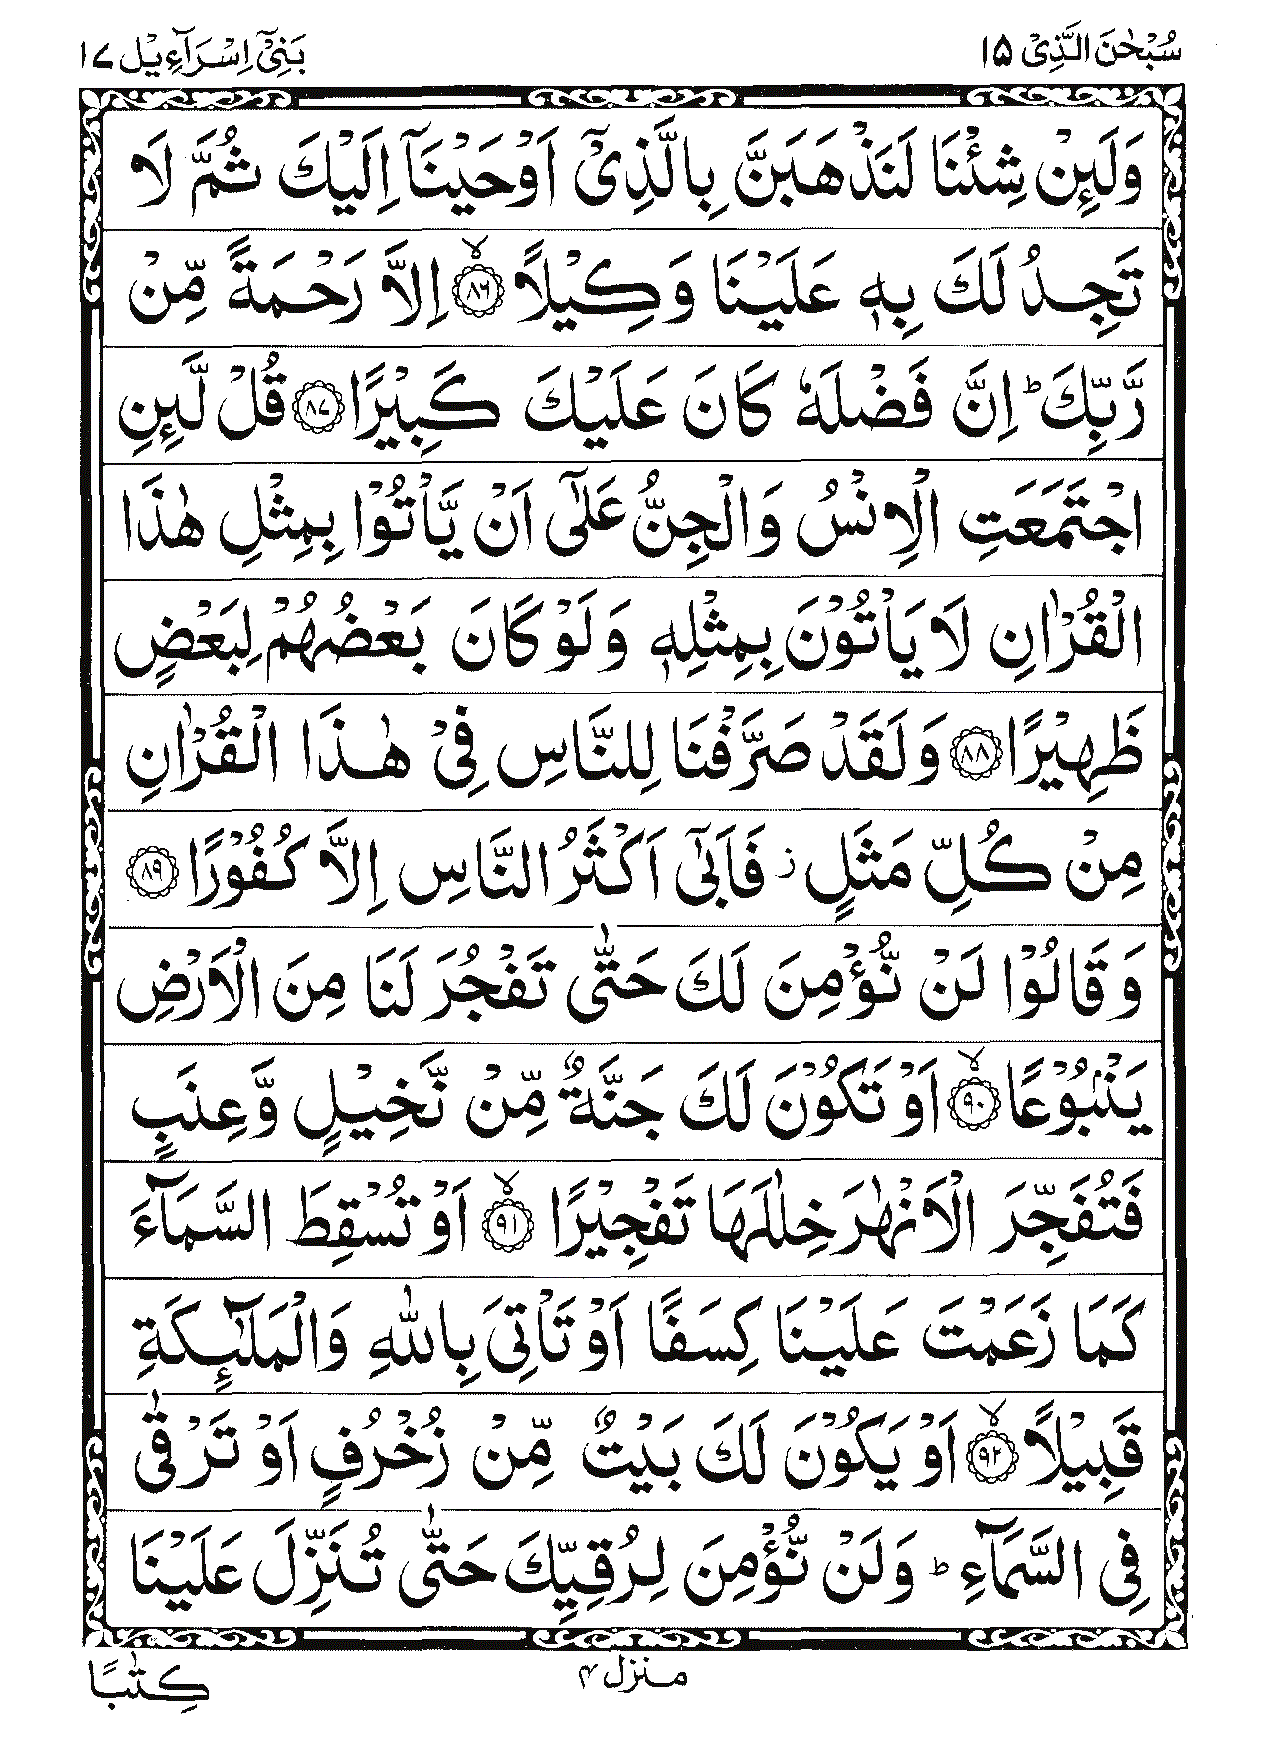 سُبْحٰنَ الَّذِیْۤ ۱۵
بَنِیْۤ اِسْرَآءِیْل ۱۷
وَلَىِٕنْ شِئْنَا لَنَذْهَبَنَّ بِالَّذِیْۤ اَوْحَیْنَاۤ اِلَیْكَ ثُمَّ لَا
تَجِدُ لَكَ بِهٖ عَلَیْنَا وَكِیْلًا ﴿۸۶﴾ۙ اِلَّا رَحْمَةً مِّنْ
رَّبِّكَ ؕ اِنَّ فَضْلَهٗ كَانَ عَلَیْكَ كَبِیْرًا ﴿۸۷﴾ قُلْ لَّىِٕنِ
اجْتَمَعَتِ الْاِنْسُ وَالْجِنُّ عَلٰۤی اَنْ یَّاْتُوْا بِمِثْلِ هٰذَا
الْقُرْاٰنِ لَا یَاْتُوْنَ بِمِثْلِهٖ وَلَوْ كَانَ بَعْضُهُمْ لِبَعْضٍ
ظَهِیْرًا ﴿۸۸﴾ وَلَقَدْ صَرَّفْنَا لِلنَّاسِ فِیْ هٰذَا الْقُرْاٰنِ
مِنْ كُلِّ مَثَلٍ ؗ فَاَبٰۤی اَكْثَرُ النَّاسِ اِلَّا كُفُوْرًا ﴿۸۹﴾
وَقَالُوْا لَنْ نُّؤْمِنَ لَكَ حَتّٰی تَفْجُرَ لَنَا مِنَ الْاَرْضِ
یَنْۢبُوْعًا ﴿۹۰﴾ۙ اَوْ تَكُوْنَ لَكَ جَنَّةٌ مِّنْ نَّخِیْلٍ وَّعِنَبٍ
فَتُفَجِّرَ الْاَنْهٰرَ خِلٰلَهَا تَفْجِیْرًا ﴿۹۱﴾ۙ اَوْ تُسْقِطَ السَّمَآءَ
كَمَا زَعَمْتَ عَلَیْنَا كِسَفًا اَوْ تَاْتِیَ بِاللّٰهِ وَالْمَلٰٓىِٕكَةِ
قَبِیْلًا ﴿۹۲﴾ۙ اَوْ یَكُوْنَ لَكَ بَیْتٌ مِّنْ زُخْرُفٍ اَوْ تَرْقٰی
فِی السَّمَآءِ ؕ وَلَنْ نُّؤْمِنَ لِرُقِیِّكَ حَتّٰی تُنَزِّلَ عَلَیْنَا
منزل ۴
كِتٰبًا